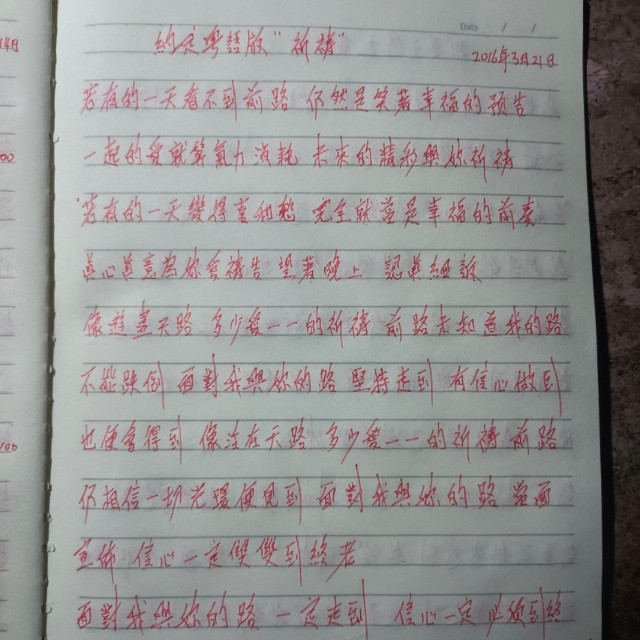 Date / /
約定粵語版"祈禱"
2016年3月21日
若有的一天看不到前路 仍然是笑著幸福的預告
一起的愛就算氣力消耗 未來的精彩與你祈禱
若有的一天變得蒼和老 完全就當是幸福的前奏
真心真意為你會禱告 望著晚上 認真細訴
像遊盡天路 多少愛一一的祈禱 前路未知道我的路
不能跌倒 面對我與你的路 堅持走到 有信心做到
也便會得到 像活在天路 多少愛一一的祈禱 前路
仍相信一切光環便見到 面對我與你的路 當面
宣佈 信心一定雙雙到終老
面對我與你的路 一定走到 信心一定必須到終